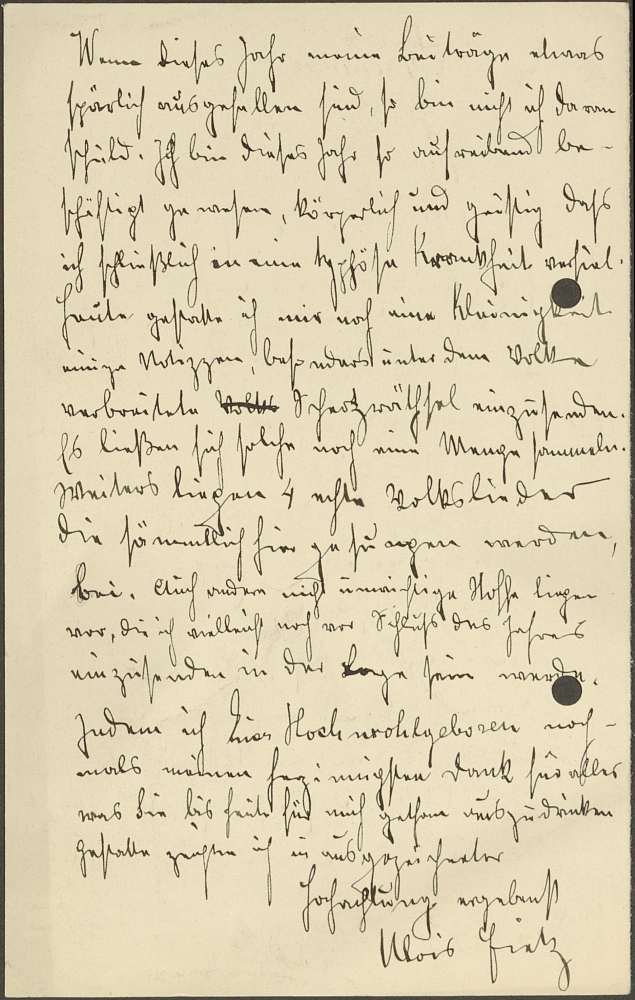 Wenn dieses Jahr meine Beiträge etwas
spärlich ausgefallen sind, so bin nicht ich daran
schuld. Ich bin dieses Jahr so aufreibend be-
schäftigt gewesen, körperlich und geistig dass
ich schließlich in eine typhöse Krankheit verfiel.
Heute gestatte ich mir noch eine Kleinigkeit
einige Notizzen, besonders unter dem Volke
verbreitete Volks Scherzräthsel einzusenden.
Es ließen sich solche noch eine Menge sammeln.
Weiters liegen 4 echte Volkslieder
die sämmtlich hier gesungen werden,
bei. Auch andere nicht unwichtige Stoffe liegen
vor, die ich vielleicht noch vor Schluß des Jahres
einzusenden in der Lage sein werde.
Indem ich Euer Hochwohlgeboren noch-
mals meinen herzinnigsten Dank für alles
was Sie bis heute für mich gethan auszudrücken
gestatte zeichne ich in ausgezeichneter
Hochachtung ergebenst
Alois Fietz